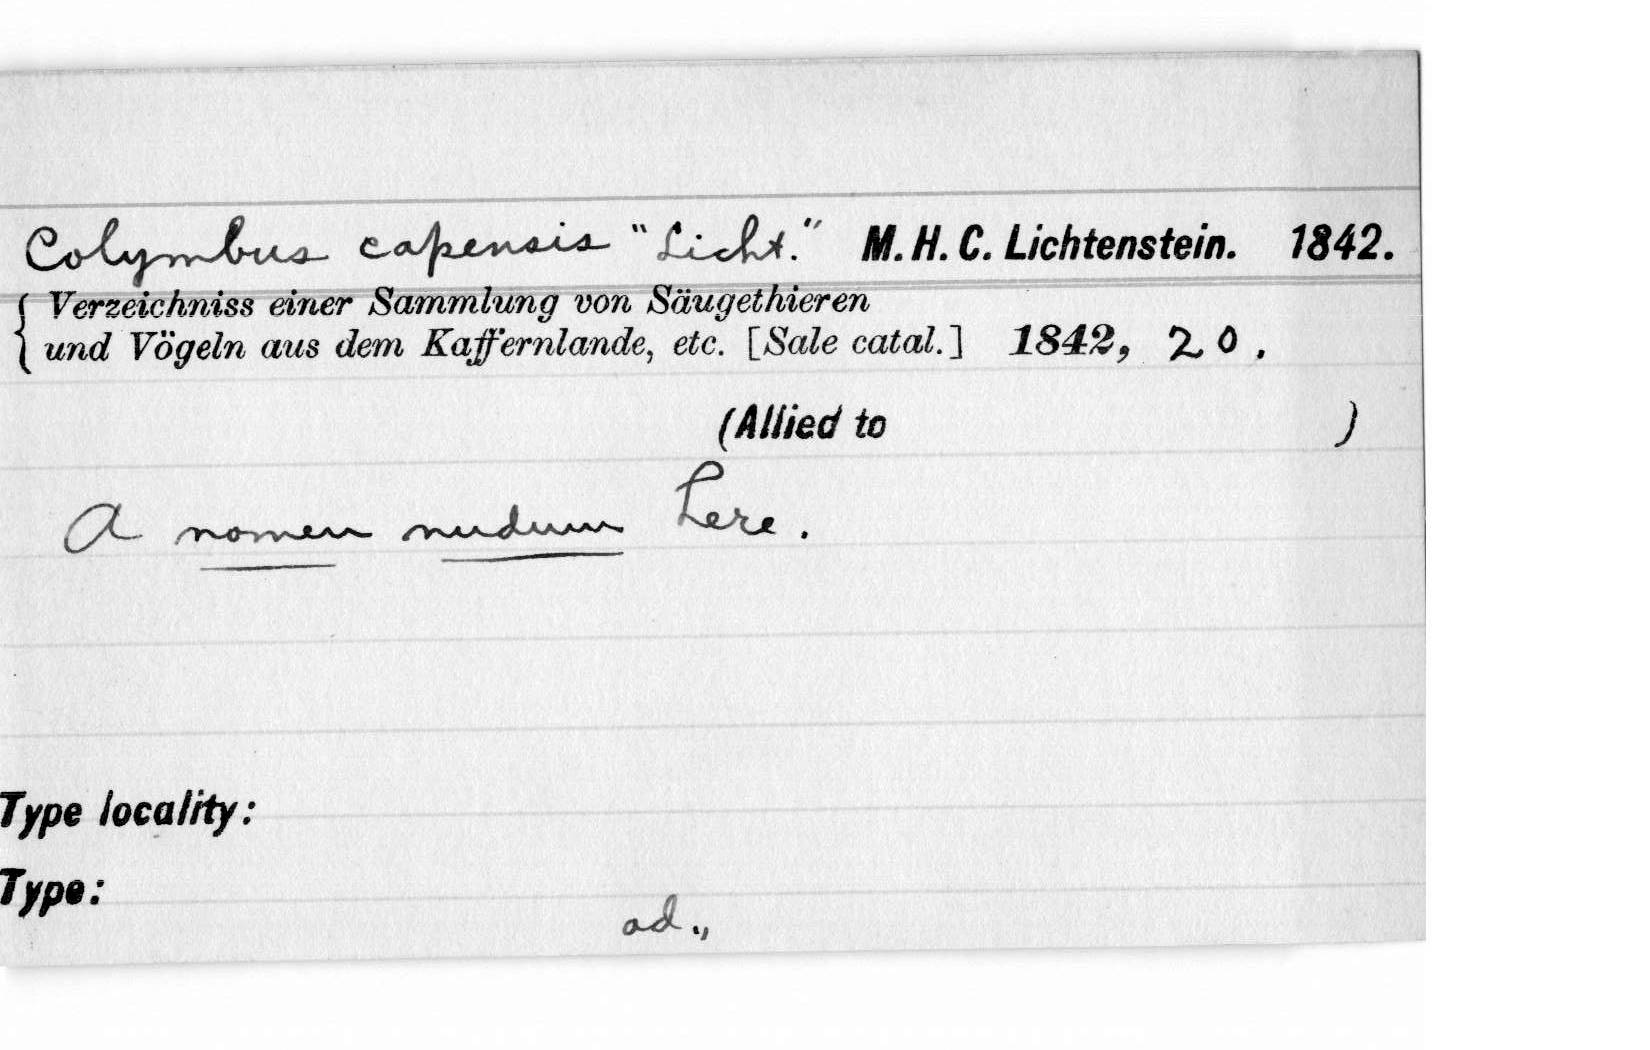 Colymbus capensis "Licht." M. H. C. Lichtenstein. 1842.
{ Verzeichniss einer Sammlung von Säugethieren
und Vögeln aus dem Kaffernlande, etc. [Sale catal.] 1842, 20.
(Allied to )
A nomen nudum here.
Type locality:
Type:
ad.,